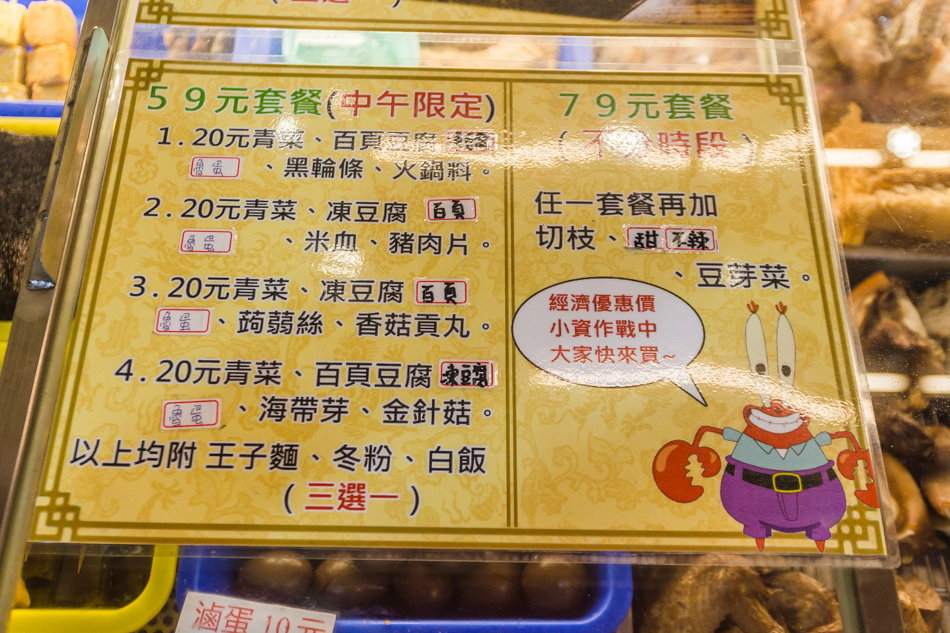 三選一
59元套餐(中午限定)
1.20元青菜、百頁豆腐
魯蛋、黑輪條、火鍋料。
2.20元青菜、凍豆腐 百頁
魯蛋、米血、豬肉片。
3.20元青菜、凍豆腐 百頁
魯蛋、蒟蒻絲、香菇貢丸。
4.20元青菜、百頁豆腐 凍豆腐
魯蛋、海帶芽、金針菇。
以上均附 王子麵、冬粉、白飯
(三選一)
79元套餐
(不分時段)
任一套餐再加
切枝、甜不辣
、豆芽菜。
經濟優惠價
小資作戰中
大家快來買~
滷蛋10元